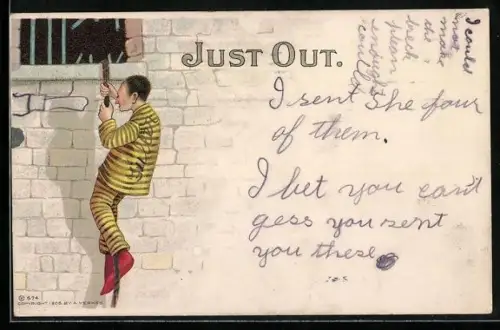 JUST OUT.
I could
not
make
the
plain
back
enough
could
I sent she four
of them.
I bet you can't
gess you sent
you these
© 574
COPYRIGHT 1905 BY